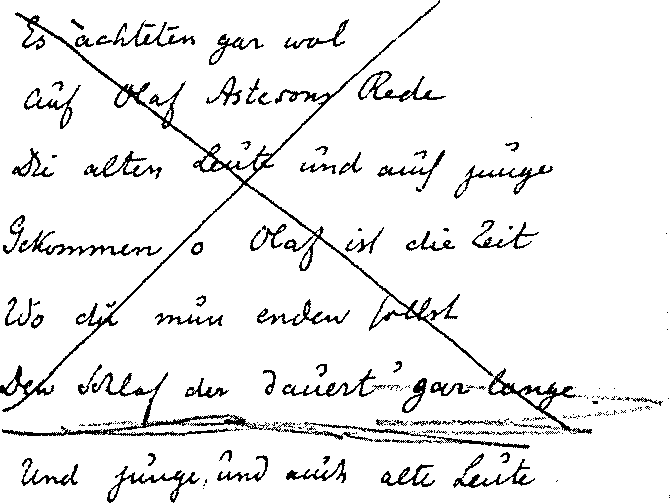 Es achteten gar wol
Auf Olaf Astesons Rede
Die alten Leute und auch junge
Gekommen o Olaf ist die Zeit
Wo du nun enden sollst
Den Schlaf der dauert' gar lange.
Und junge, und auch alte Leute